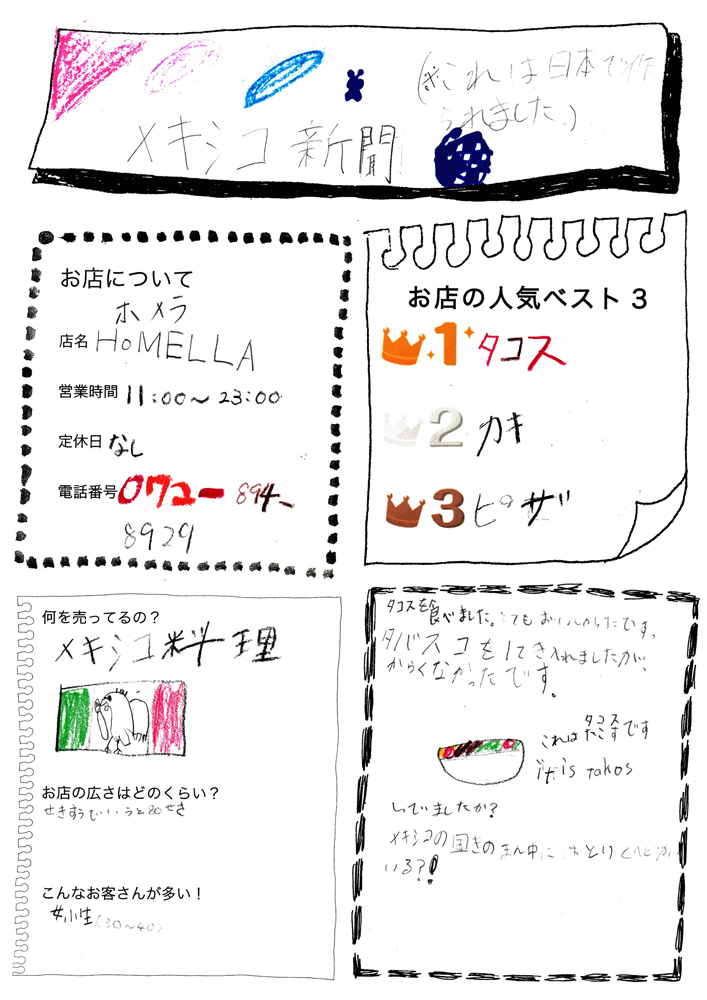 (※これは日本で作
られました。)
メキシコ新聞
お店について
ホメラ
店名 HoMELLA
営業時間 11:00〜23:00
定休日 なし
電話番号 072-894-
8929
お店の人気ベスト3
1 タコス
2 カキ
3 ピザ
何を売ってるの？
メキシコ料理
お店の広さはどのくらい？
せきすうでいうと80せき
こんなお客さんが多い！
女性(30〜40)
タコスを食べました。とてもおいしかったです。
タバスコを1てき入れましたが、
からくなかったです。
タコス
これはたこすです
it is Takos
しってましたか？
メキシコの国きのまん中にはとりとヘビが
いる?!